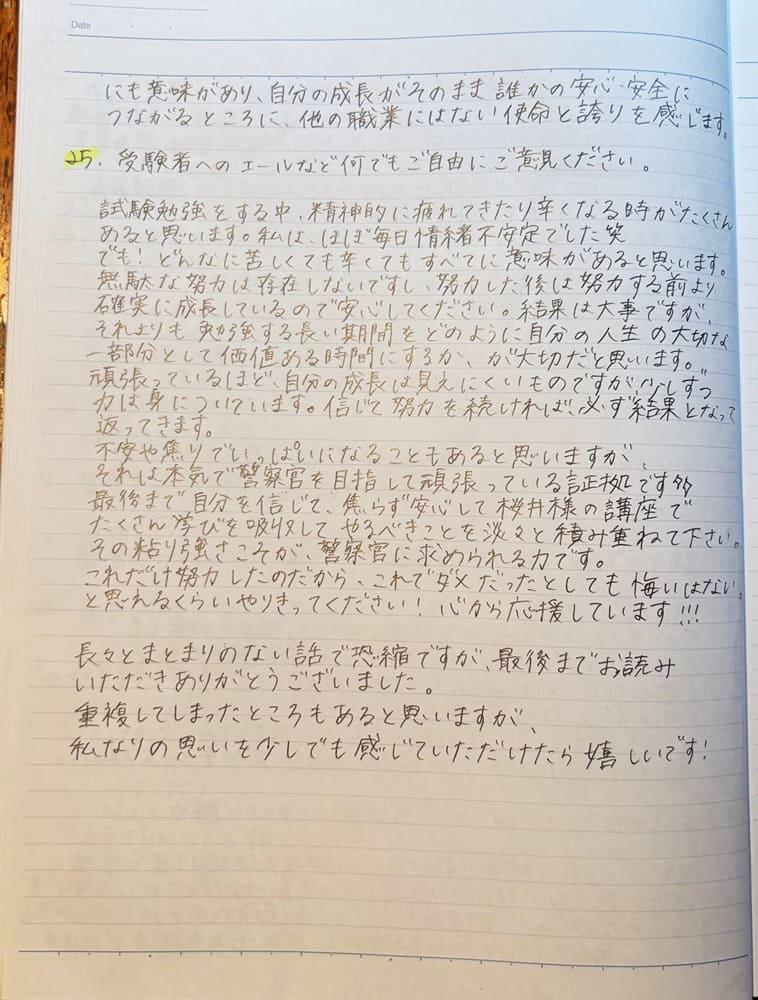 Date
にも意味があり、自分の成長がそのまま誰かの安心・安全に
つながるところに、他の職業にはない使命と誇りを感じます。
25. 受験者へのエールなど何でもご自由にご意見ください。
試験勉強をする中、精神的に疲れてきたり辛くなる時がたくさん
あると思います。私は、ほぼ毎日情緒不安定でした笑
でも！どんなに苦しくても辛くてもすべてに意味があると思います。
無駄な努力は存在しないですし、努力した後は努力する前より
確実に成長しているので安心してください。結果は大事ですが、
それよりも勉強する長い期間をどのように自分の人生の大切な
一部分として価値ある時間にするか、が大切だと思います。
頑張っているほど、自分の成長は見えにくいものですが、少しずつ
力は身についています。信じて努力を続ければ、必ず結果となって
返ってきます。
不安や焦りでいっぱいになることもあると思いますが、
それは本気で警察官を目指して頑張っている証拠です
最後まで自分を信じて、焦らず安心して桜井様の講座で
たくさん学びを吸収してやるべきことを淡々と積み重ねて下さい。
その粘り強さこそが、警察官に求められる力です。
これだけ努力したのだから、これでダメだったとしても悔いはない。
と思えるくらいやりきってください！心から応援しています!!!
長々とまとまりのない話で恐縮ですが、最後までお読み
いただきありがとうございました。
重複してしまったところもあると思いますが、
私なりの思いを少しでも感じていただけたら嬉しいです！